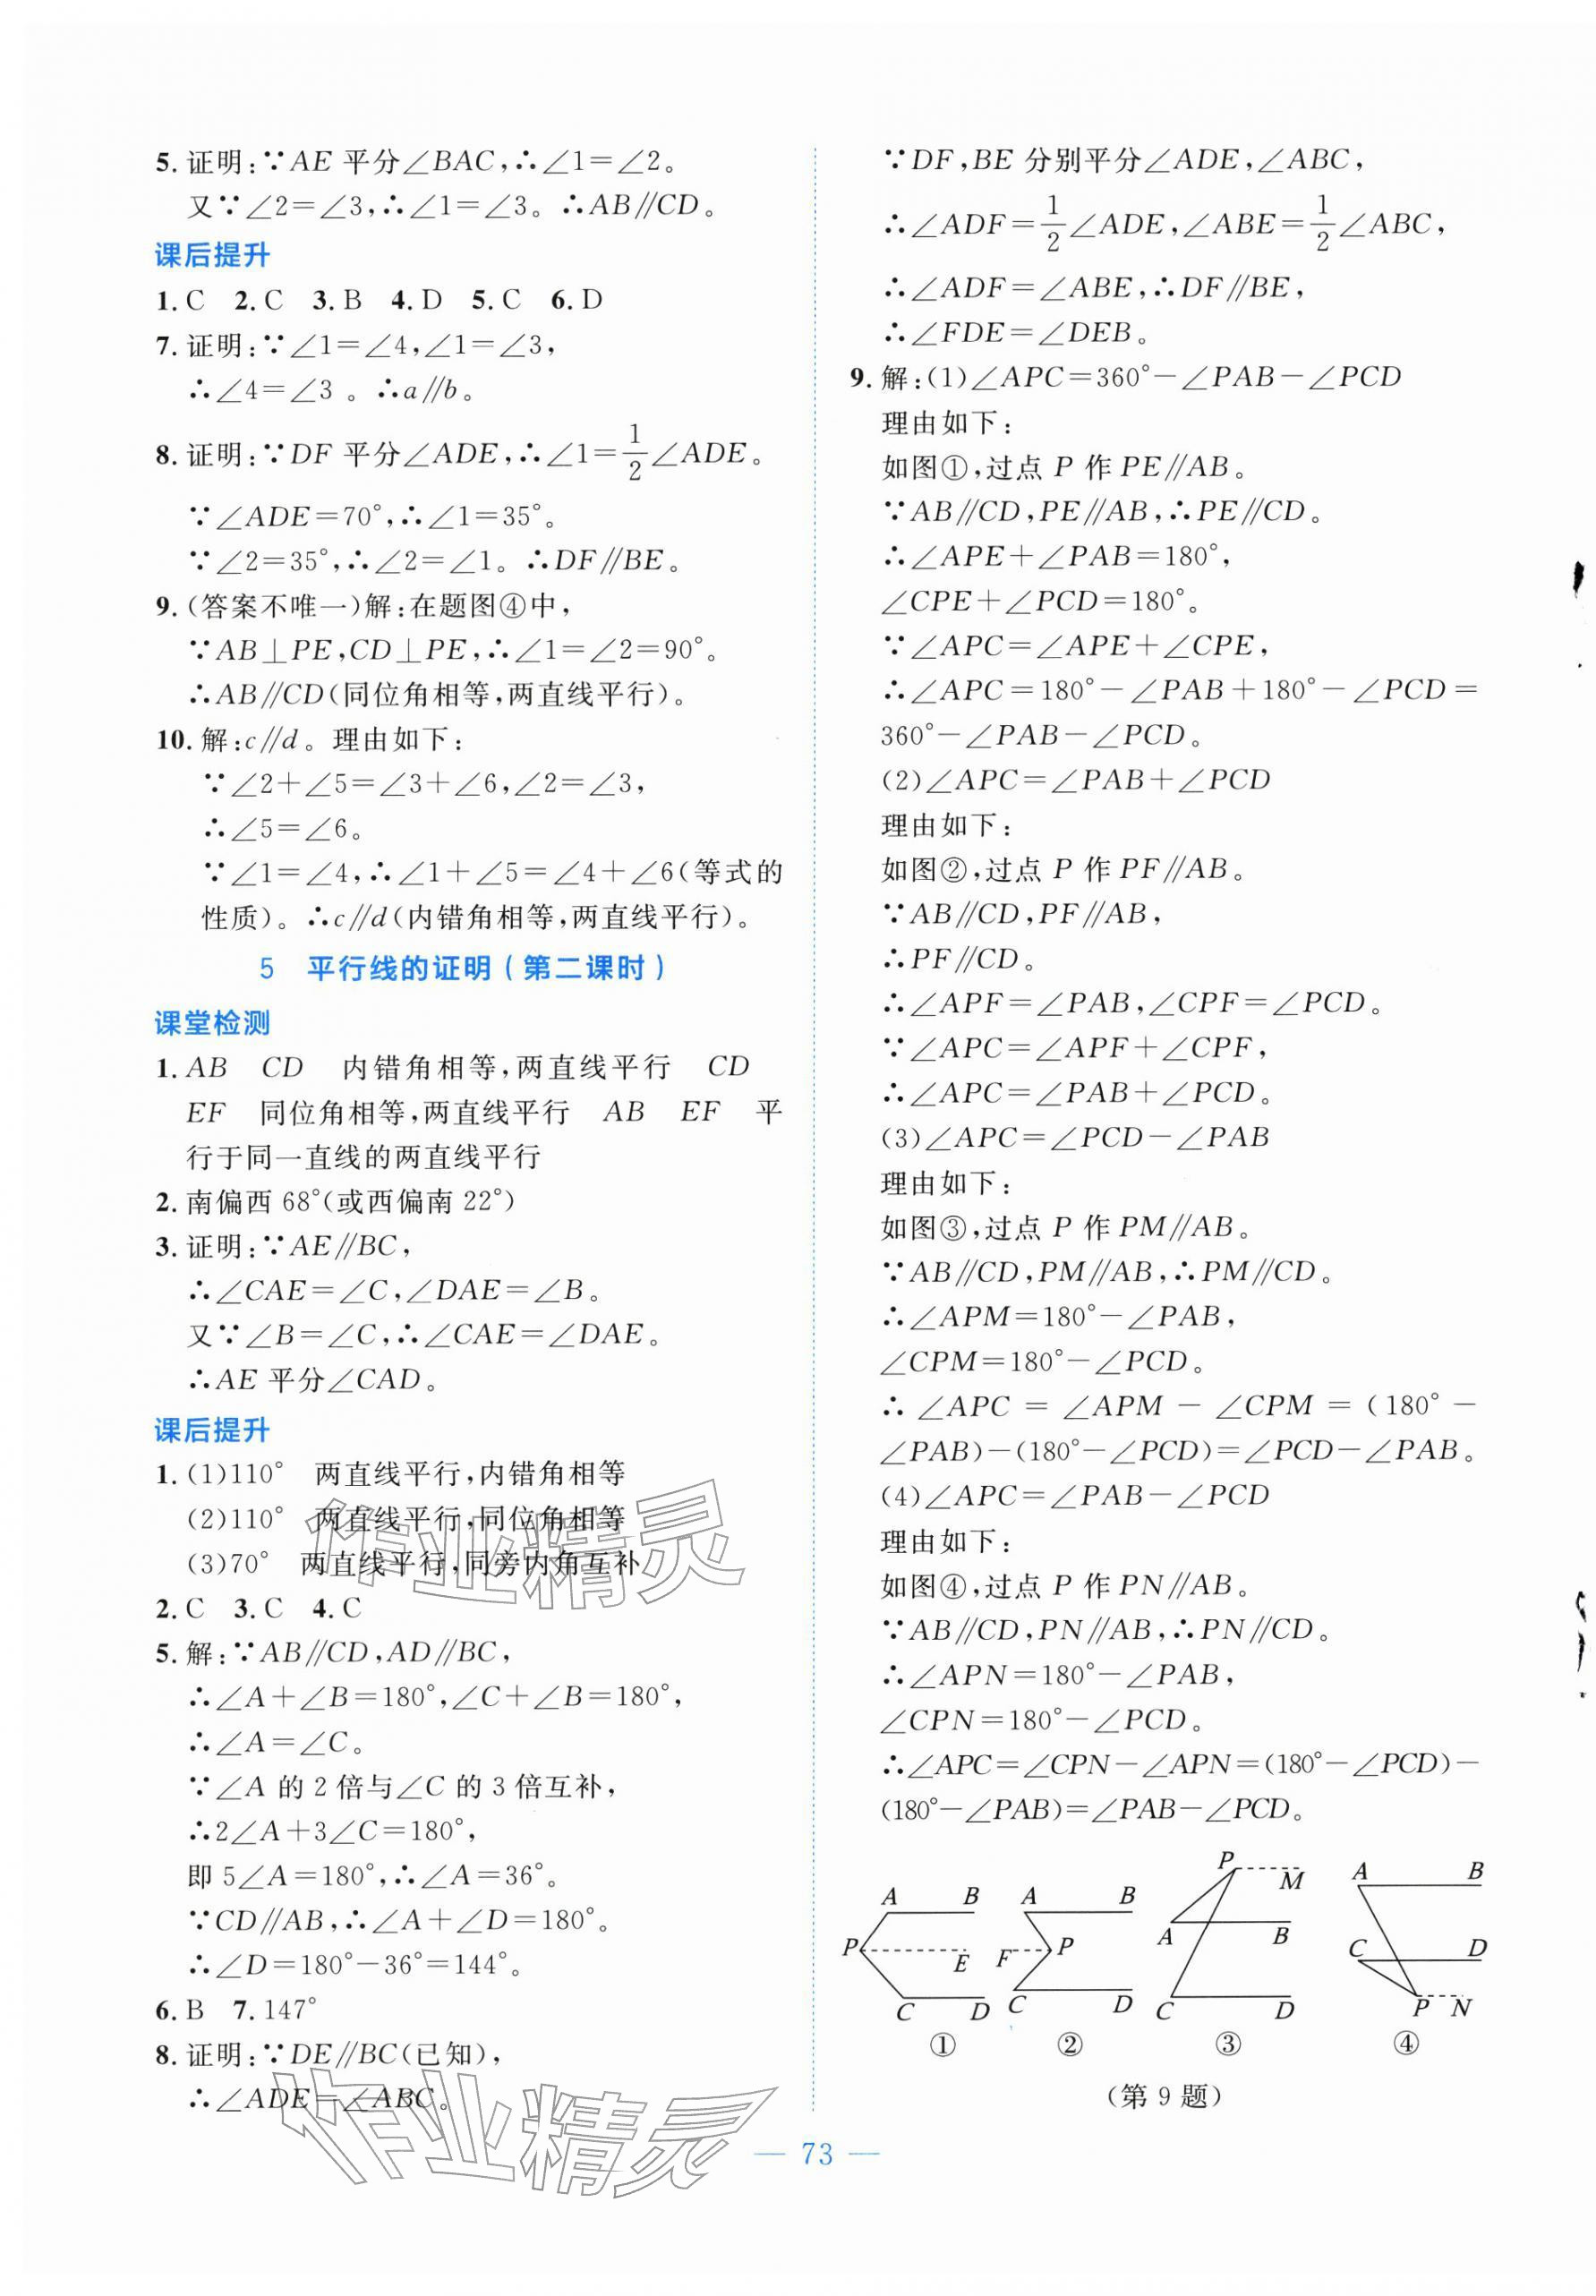 5. 证明:∵AE 平分∠BAC,∴∠1=∠2。
又∵∠2=∠3,∴∠1=∠3。∴AB∥CD。
课后提升
1. C 2. C 3. B 4. D 5. C 6. D
7. 证明:∵∠1=∠4,∠1=∠3,
∴∠4=∠3 。∴a∥b。
8. 证明:∵DF 平分∠ADE,∴∠1=1/2∠ADE。
∵∠ADE=70°,∴∠1=35°。
∵∠2=35°,∴∠2=∠1。∴DF∥BE。
9. (答案不唯一)解:在题图④中,
∵AB⊥PE,CD⊥PE,∴∠1=∠2=90°。
∴AB∥CD(同位角相等,两直线平行)。
10. 解:c∥d。理由如下:
∵∠2+∠5=∠3+∠6,∠2=∠3,
∴∠5=∠6。
∵∠1=∠4,∴∠1+∠5=∠4+∠6(等式的
性质)。∴c∥d(内错角相等,两直线平行)。
5 平行线的证明(第二课时)
课堂检测
1. AB CD 内错角相等,两直线平行 CD
EF 同位角相等,两直线平行 AB EF 平
行于同一直线的两直线平行
2. 南偏西 68°(或西偏南 22°)
3. 证明:∵AE∥BC,
∴∠CAE=∠C,∠DAE=∠B。
又∵∠B=∠C,∴∠CAE=∠DAE。
∴AE 平分∠CAD。
课后提升
1. (1)110° 两直线平行,内错角相等
(2)110° 两直线平行,同位角相等
(3)70° 两直线平行,同旁内角互补
作业精灵
2. C 3. C 4. C
5. 解:∵AB∥CD,AD∥BC,
∴∠A+∠B=180°,∠C+∠B=180°,
∴∠A=∠C。
∵∠A 的 2 倍与∠C 的 3 倍互补,
∴2∠A+3∠C=180°,
即 5∠A=180°,∴∠A=36°。
∵CD∥AB,∴∠A+∠D=180°。
∴∠D=180°-36°=144°。
6. B 7. 147°
8. 证明:∵DE∥BC(已知),
∴∠ADE=∠ABC。
作业精灵
∵DF,BE 分别平分∠ADE,∠ABC,
∴∠ADF=1/2∠ADE,∠ABE=1/2∠ABC,
∴∠ADF=∠ABE,∴DF∥BE,
∴∠FDE=∠DEB。
9. 解:(1)∠APC=360°-∠PAB-∠PCD
理由如下:
如图①,过点 P 作 PE∥AB。
∵AB∥CD,PE∥AB,∴PE∥CD。
∴∠APE+∠PAB=180°,
∠CPE+∠PCD=180°。
∵∠APC=∠APE+∠CPE,
∴∠APC=180°-∠PAB+180°-∠PCD=
360°-∠PAB-∠PCD。
(2)∠APC=∠PAB+∠PCD
理由如下:
如图②,过点 P 作 PF∥AB。
∵AB∥CD,PF∥AB,
∴PF∥CD。
∴∠APF=∠PAB,∠CPF=∠PCD。
∵∠APC=∠APF+∠CPF,
∴∠APC=∠PAB+∠PCD。
(3)∠APC=∠PCD-∠PAB
理由如下:
如图③,过点 P 作 PM∥AB。
∵AB∥CD,PM∥AB,∴PM∥CD。
∴∠APM=180°-∠PAB,
∠CPM=180°-∠PCD。
∴∠APC=∠APM-∠CPM=(180°-
∠PAB)-(180°-∠PCD)=∠PCD-∠PAB。
(4)∠APC=∠PAB-∠PCD
理由如下:
如图④,过点 P 作 PN∥AB。
∵AB∥CD,PN∥AB,∴PN∥CD。
∴∠APN=180°-∠PAB,
∠CPN=180°-∠PCD。
∴∠APC=∠CPN-∠APN=(180°-∠PCD)-
(180°-∠PAB)=∠PAB-∠PCD。
A B P E C D ①
A B F P C D ②
P M A B C D ③
A B C D P N ④
(第 9 题)
— 73 —